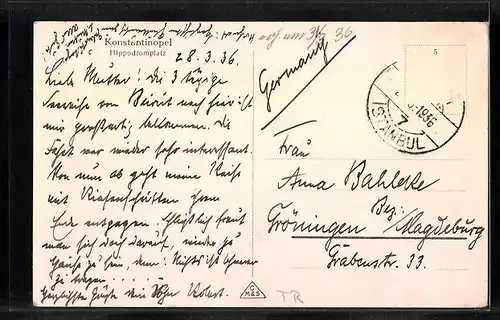 Konstantinopel
Hippodromplatz
28.3.36.
Liebe Mutter! Die 3 tägige
Seereise von Beirut nach hier ist
mir großartig bekommen. Die
Fahrt war wieder sehr interessant.
Von nun ab geht meine Reise
mit Riesenschritten ihrem
Ende entgegen. Schließlich freut
man sich doch darauf, wieder zu
Hause zu sein, denn: Nichts ist schwerer
zu tragen
Herzlichste Grüße dein Sohn Robert.
36
Germany
5
1936
7
ISTANBUL
Frau
Anna Bahlcke
Gröningen Bez. Magdeburg
Grabenstr. 33.
C
M&S
TR